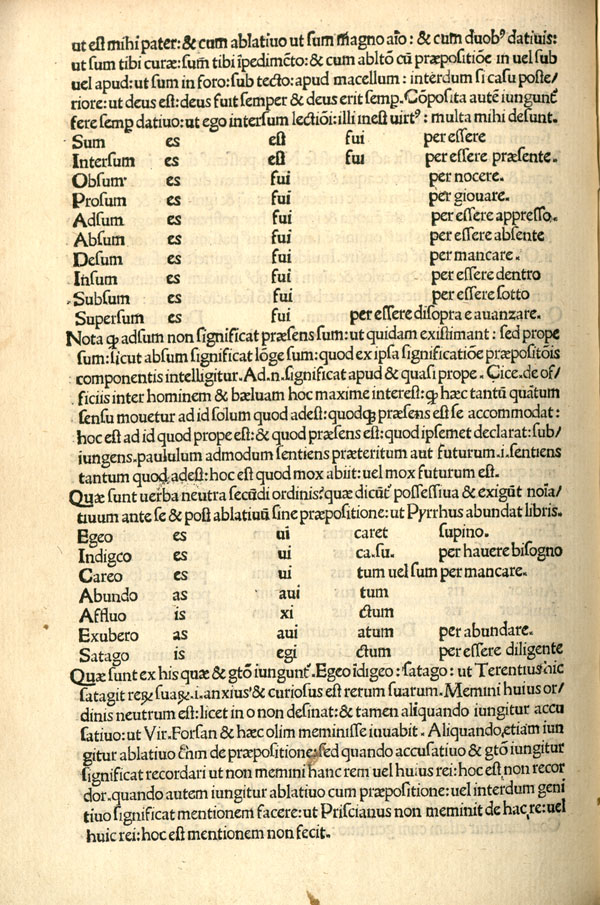 ut est mihi pater: & cum ablatiuo ut sum magno aĩo: & cum duobꝰ datiuis:
ut sum tibi curæ: sum tibi ĩpedimẽto: & cum abltõ cũ præpositiõe in uel sub
uel apud: ut sum in foro: sub tecto: apud macellum: interdum si casu poste/
riore: ut deus est: deus fuit semper & deus erit semp. Cõposita autẽ iungunt̃
fere semp datiuo: ut ego intersum lectiõi: illi inest uirtꝰ: multa mihi desunt.
Sum es est fui per essere
Intersum es est fui per essere præsente.
Obsum es fui per nocere.
Prosum es fui per giouare.
Adsum es fui per essere appresso.
Absum es fui per essere absente
Desum es fui per mancare.
Insum es fui per essere dentro
Subsum es fui per essere sotto
Supersum es fui per essere disopra e auanzare.
Nota ꝙ adsum non significat præsens sum: ut quidam existimant: sed prope
sum: sicut absum significat lõge sum: quod ex ipsa significatiõe præpositõis
componentis intelligitur. Ad.n. significat apud & quasi prope. Cice. de of/
ficiis inter hominem & bæluam hoc maxime interest: ꝙ hæc tantũ quãtum
sensu mouetur ad id solum quod adest: quodqꝫ præsens est se accommodat:
hoc est ad id quod prope est: & quod præsens est: quod ipsemet declarat: sub/
iungens. paululum admodum sentiens præteritum aut futurum .i. sentiens
tantum quod adest: hoc est quod mox abiit: uel mox futurum est.
Quæ sunt uerba neutra secũdi ordinis? quæ dicũt possessiua & exigũt noĩa/
tiuum ante se & post ablatiuũ sine præpositione: ut Pyrrhus abundat libris.
Egeo es ui caret supino.
Indigeo es ui ca.su. per hauere bisogno
Careo es ui tum uel sum per mancare.
Abundo as aui tum
Affluo is xi ctum
Exubero as aui atum per abundare.
Satago is egi ctum per essere diligente
Quæ sunt ex his quæ & gtõ iungunt̃. Egeo ĩdigeo: satago: ut Terentius hic
satagit reꝝ suaꝝ .i. anxius & curiosus est rerum suarum. Memini huius or/
dinis neutrum est: licet in o non desinat: & tamen aliquando iungitur accu
satiuo: ut Vir. Forsan & hæc olim meminisse iuuabit. Aliquando etiam iun
gitur ablatiuo cũm de præpositione: sed quando accusatiuo & gtõ iungitur
significat recordari ut non memini hanc rem uel huius rei: hoc est non recor
dor. quando autem iungitur ablatiuo cum præpositione: uel interdum geni
tiuo significat mentionem facere: ut Priscianus non meminit de hac re: uel
huic rei: hoc est mentionem non fecit.